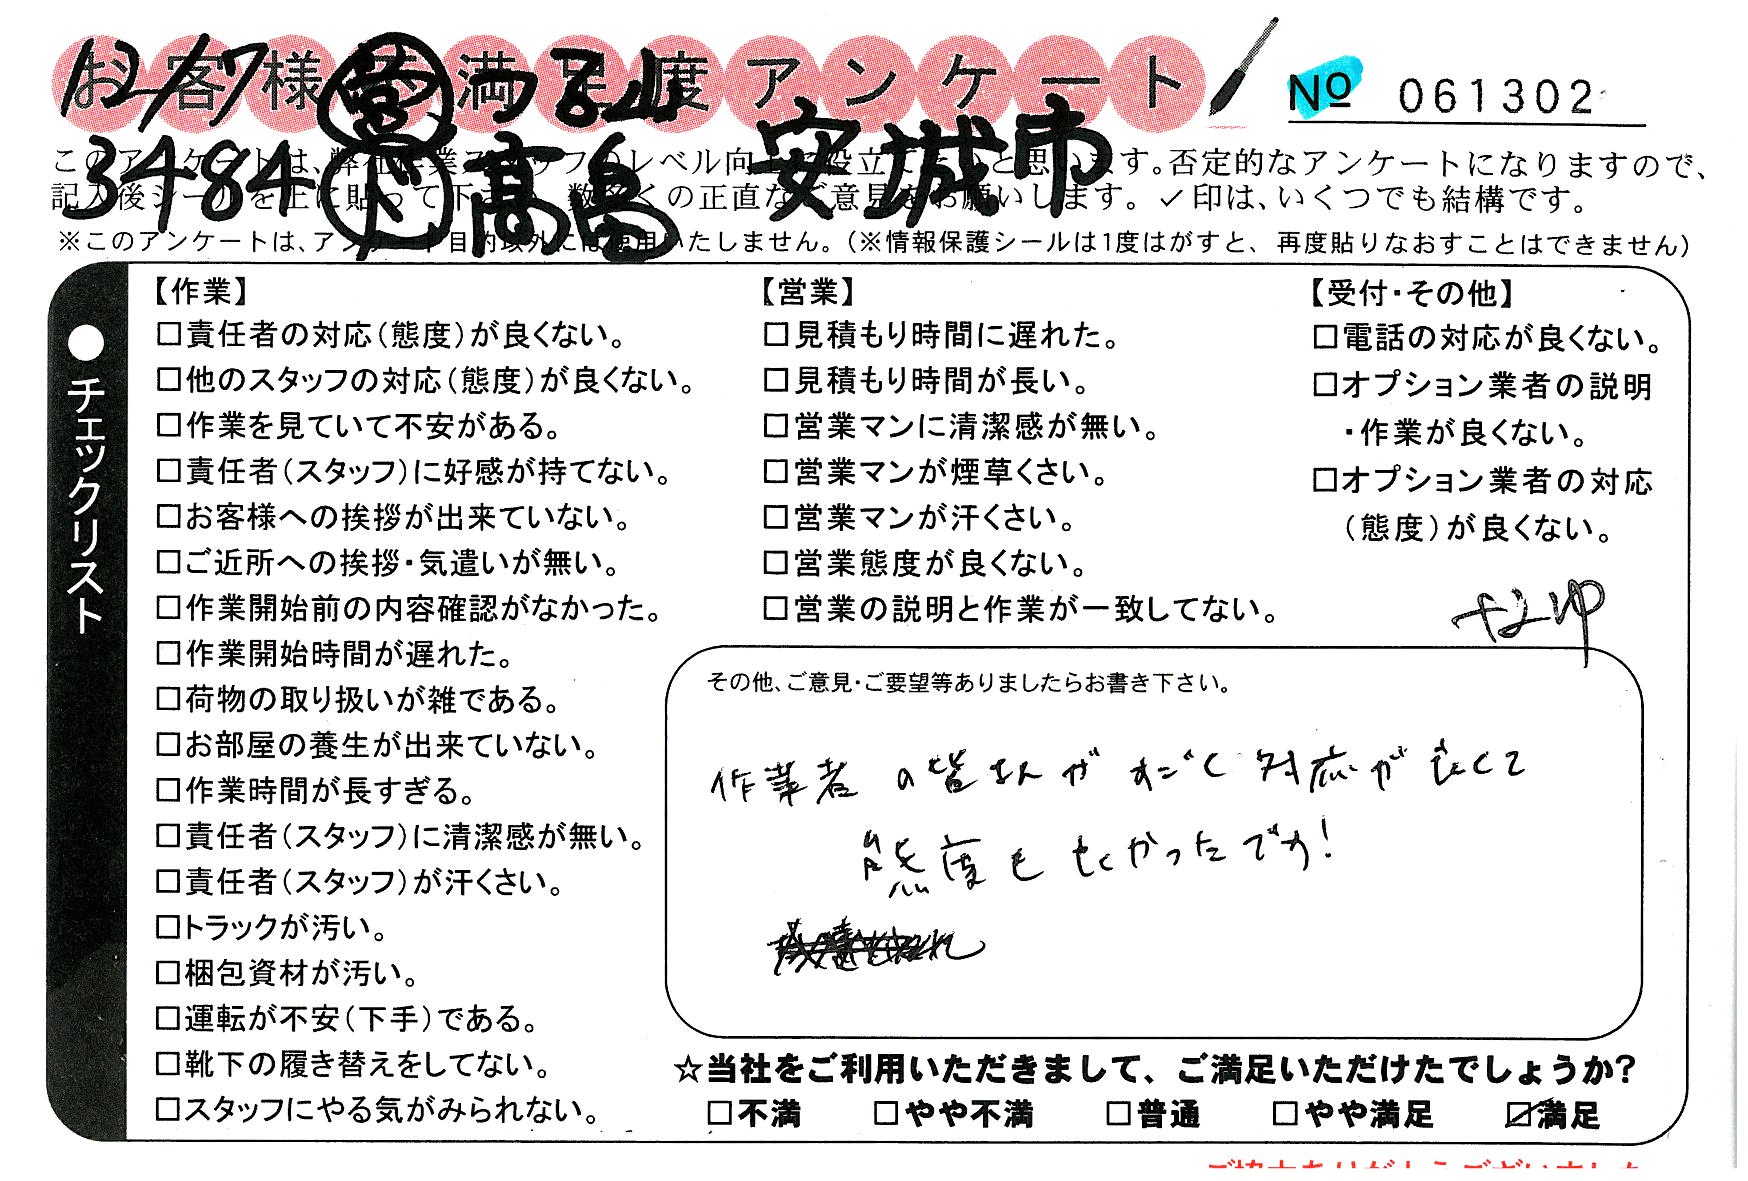 お客様の満足度アンケート
No 061302
12/7 営 つるい
3484 ド 高畠 安城市
このアンケートは、弊社作業スタッフのレベル向上に役立てたいと思います。否定的なアンケートになりますので、
記入後シールを上に貼って下さい。数多くの正直なご意見をお願いします。✓印は、いくつでも結構です。
※このアンケートは、アンケート目的以外には使用いたしません。(※情報保護シールは1度はがすと、再度貼りなおすことはできません)
●チェックリスト
【作業】
□責任者の対応(態度)が良くない。
□他のスタッフの対応(態度)が良くない。
□作業を見ていて不安がある。
□責任者(スタッフ)に好感が持てない。
□お客様への挨拶が出来ていない。
□ご近所への挨拶・気遣いが無い。
□作業開始前の内容確認がなかった。
□作業開始時間が遅れた。
□荷物の取り扱いが雑である。
□お部屋の養生が出来ていない。
□作業時間が長すぎる。
□責任者(スタッフ)に清潔感が無い。
□責任者(スタッフ)が汗くさい。
□トラックが汚い。
□梱包資材が汚い。
□運転が不安(下手)である。
□靴下の履き替えをしてない。
□スタッフにやる気がみられない。
【営業】
□見積もり時間に遅れた。
□見積もり時間が長い。
□営業マンに清潔感が無い。
□営業マンが煙草くさい。
□営業マンが汗くさい。
□営業態度が良くない。
□営業の説明と作業が一致してない。
【受付・その他】
□電話の対応が良くない。
□オプション業者の説明
・作業が良くない。
□オプション業者の対応
(態度)が良くない。
その他、ご意見・ご要望等ありましたらお書き下さい。
作業者の皆さんがすごく対応が良くて
態度もよかったです!
☆当社をご利用いただきまして、ご満足いただけたでしょうか?
□不満 □やや不満 □普通 □やや満足 ☑満足